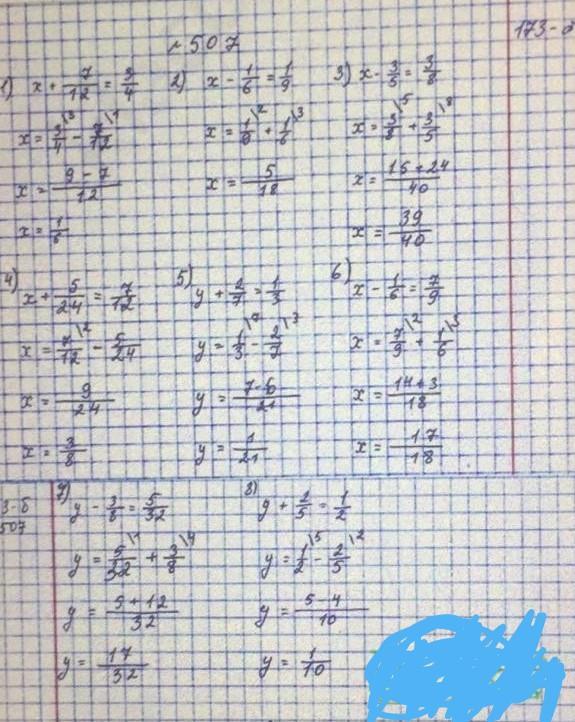 №507
173-
1) x + 7/12 = 3/4
x = 3/4\3 - 7/12\1
x = (9 - 7)/12
x = 1/6
2) x - 1/6 = 1/9
x = 1/9\2 + 1/6\3
x = 5/18
3) x - 3/5 = 3/8
x = 3/8\5 + 3/5\8
x = (15 + 24)/40
x = 39/40
4) x + 5/24 = 7/12
x = 7/12\2 - 5/24
x = 9/24
x = 3/8
5) y + 2/7 = 1/3
y = 1/3\7 - 2/7\3
y = (7 - 6)/21
y = 1/21
6) x - 1/6 = 7/9
x = 7/9\2 + 1/6\3
x = (14 + 3)/18
x = 17/18
3-б
507
7) y - 3/8 = 5/32
y = 5/32\1 + 3/8\4
y = (5 + 12)/32
y = 17/32
8) y + 2/5 = 1/2
y = 1/2\5 - 2/5\2
y = (5 - 4)/10
y = 1/10